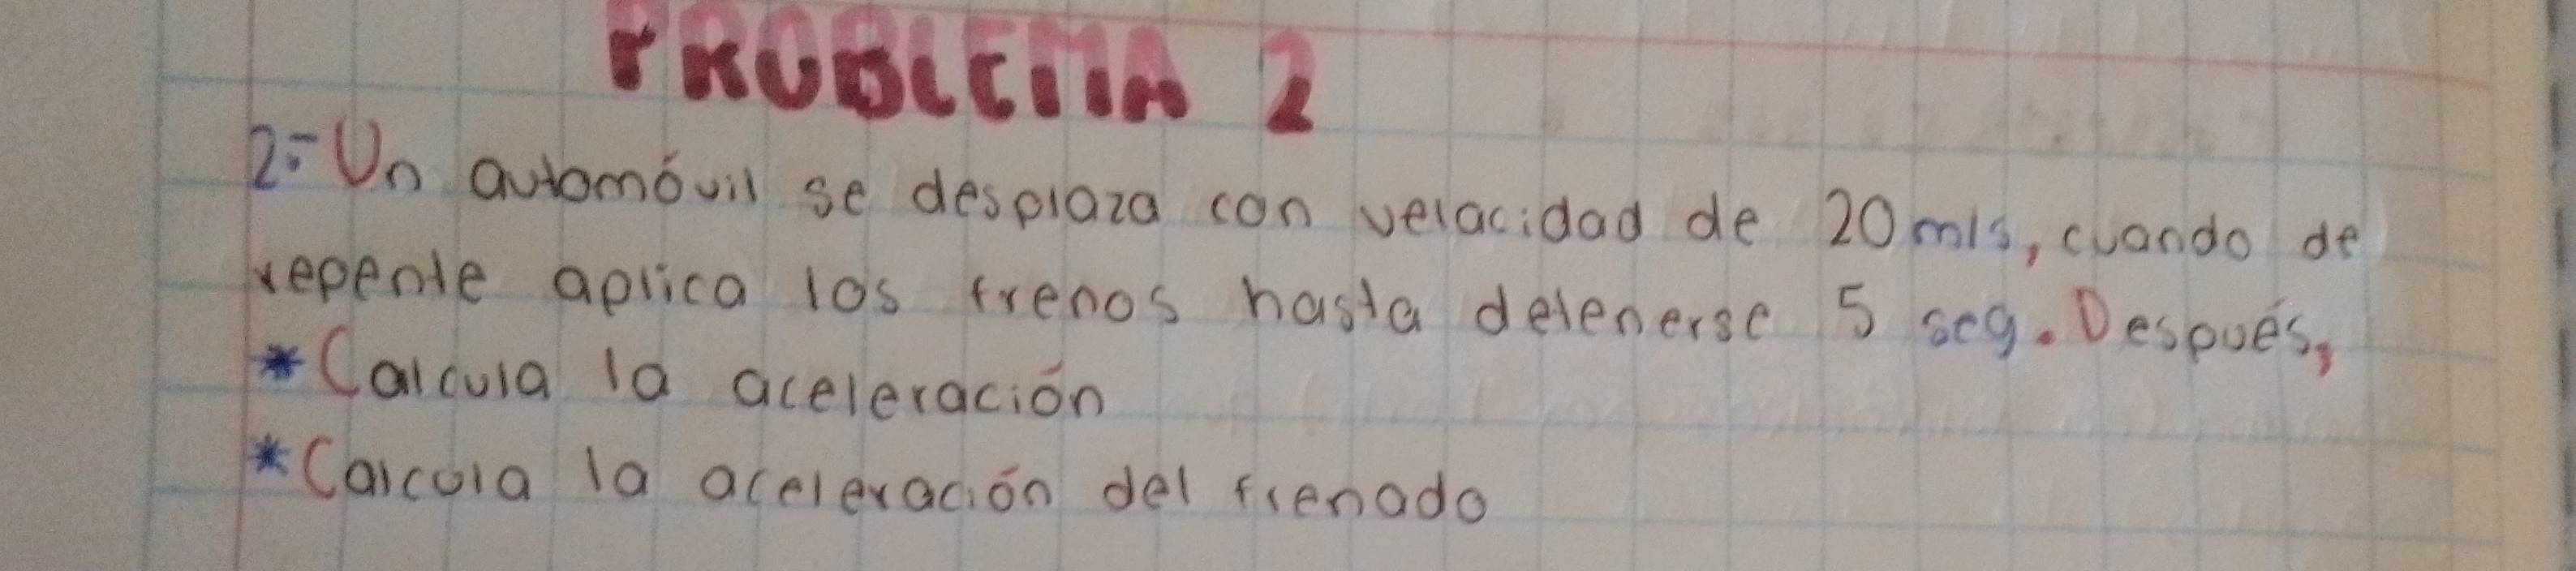 PROBLEMA 2
2.- Un automóvil se desplaza con velacidad de 20 m/s, cuando de
repente aplica los frenos hasta detenerse 5 seg. Después,
* Calcula la aceleración
* Calcula la aceleración del frenado